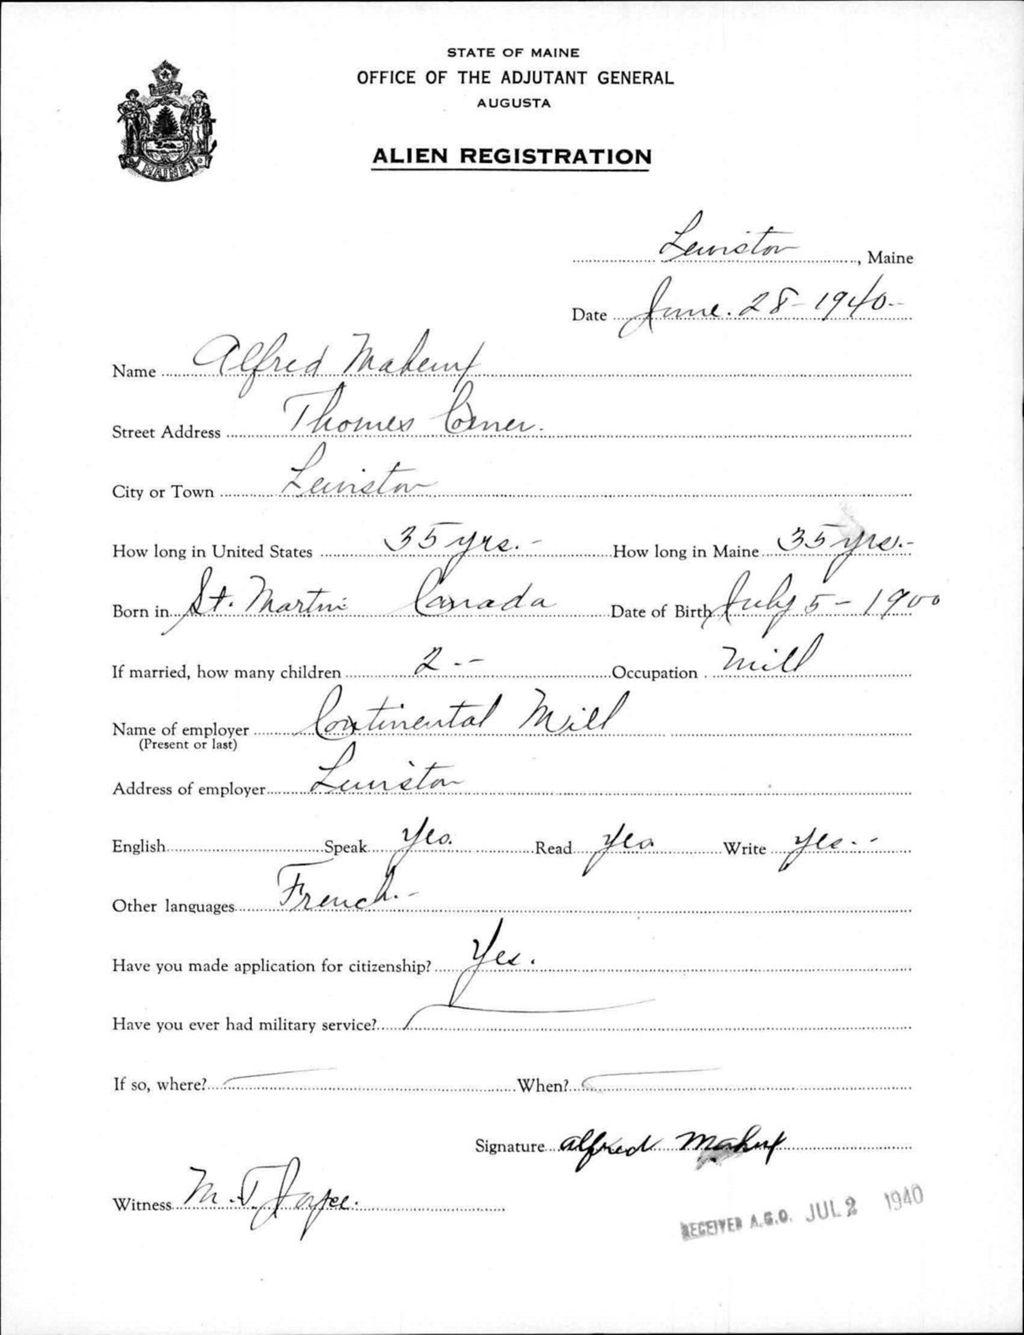 STATE OF MAINE
OFFICE OF THE ADJUTANT GENERAL
AUGUSTA
ALIEN REGISTRATION
MAINE
Lewiston, Maine
Date June. 28 - 1940 -
Name Alfred
Street Address Thomes Corner.
City or Town Lewiston
How long in United States 35 yrs. - How long in Maine 35 yrs. -
Born in St. Martin Canada Date of Birth July 5 - 1900
If married, how many children 2 - - Occupation Mill
Name of employer Continental Mill
(Present or last)
Address of employer Lewiston
English Speak Yes. Read Yes Write Yes. -
Other languages French. -
Have you made application for citizenship? Yes.
Have you ever had military service?
If so, where? When?
Signature Alfred
Witness M. T.
RECEIVED A.G.O. JUL 2 1940